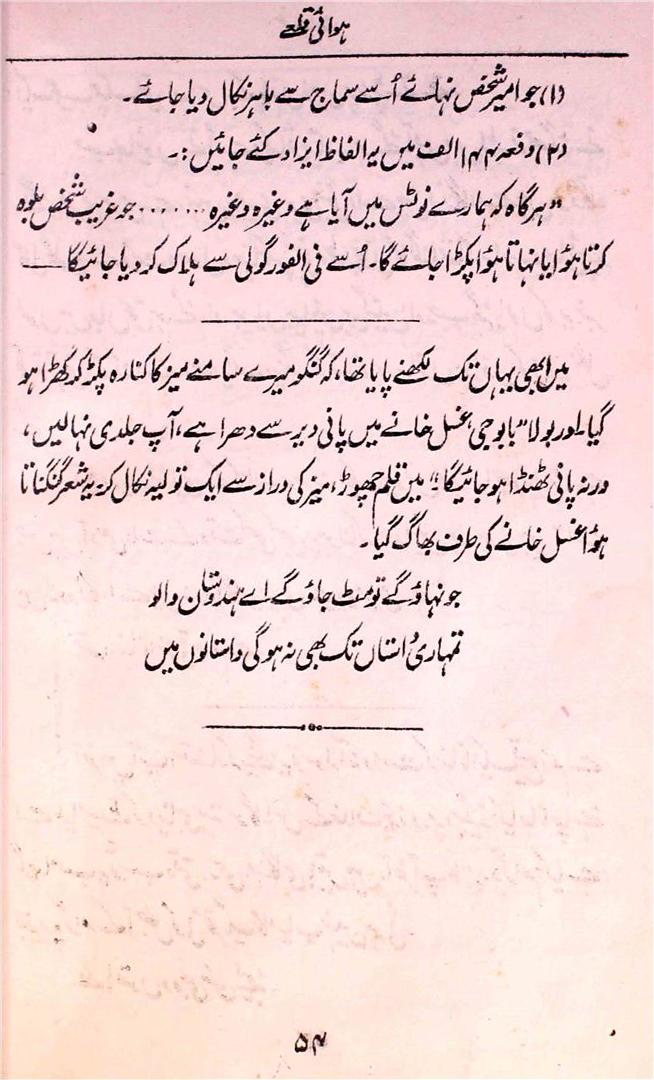 ہوائی قلعے
(۱) جو امیر شخص نہائے اُسے سماج سے باہر نکال دیا جائے۔
(۲) دفعہ ۱۴۴ الف میں یہ الفاظ ایزاد کئے جائیں:۔
"ہرگاہ کہ ہمارے نوٹس میں آیا ہے وغیرہ وغیرہ ....... جو غریب شخص بلوہ
کرتا ہوُا یا نہاتا ہوُا پکڑا جائے گا۔ اُسے فی الفور گولی سے ہلاک کر دیا جائیگا ——
میں ابھی یہاں تک لکھنے پایا تھا، کہ گنگو میرے سامنے میز کا کنارہ پکڑ کر کھڑا ہو
گیا۔ اور بولا "بابوجی غسل خانے میں پانی دیر سے دھرا ہے، آپ جلدی نہالیں،
ورنہ پانی ٹھنڈا ہو جائیگا"۔ میں قلم چھوڑ، میز کی دراز سے ایک تولیہ نکال کر یہ شعر گنگناتا
ہوُا غسل خانے کی طرف بھاگ گیا۔
جو نہاؤ گے تو مٹ جاؤ گے اے ہندوستان والو
تمہاری داستاں تک بھی نہ ہوگی داستانوں میں
۵۴